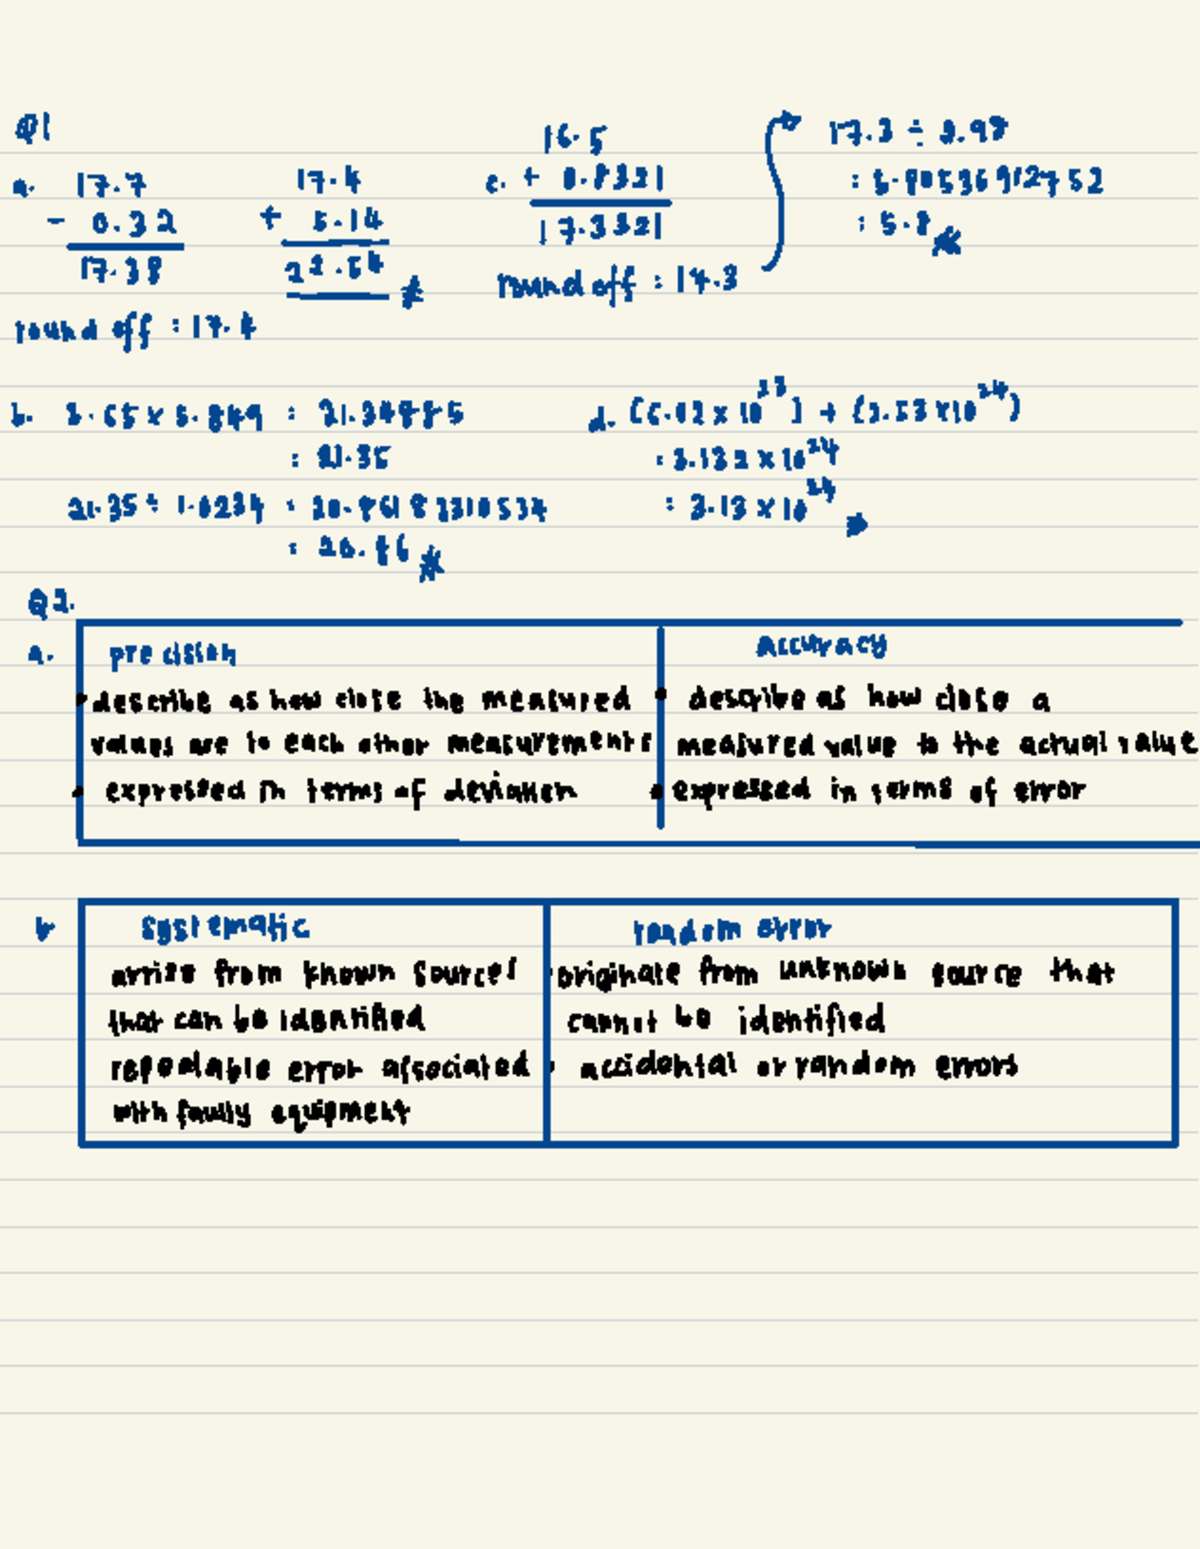 Q1
a. 17.7
- 0.32
17.38
round off : 17.4
17.4
+ 5.14
22.54
c. 16.5
+ 0.8321
17.3321
round off : 17.3
17.3 ÷ 2.98
: 5.80536912752
: 5.8
b. 3.65 x 5.849 : 21.34885
: 21.35
21.35 ÷ 1.0234 : 20.86183310534
: 20.86
d. (6.02 x 10²³) + (2.53 x 10²⁴)
: 3.132 x 10²⁴
: 3.13 x 10²⁴
Q2.
a. precision
• describe as how close the measured
values are to each other measurements
• expressed in terms of deviation
accuracy
• describe as how close a
measured value to the actual value
• expressed in terms of error
b systematic
arrise from known sources
that can be identified
repeatable error associated
with faulty equipment
random error
• originate from unknown source that
cannot be identified
• accidental or random errors